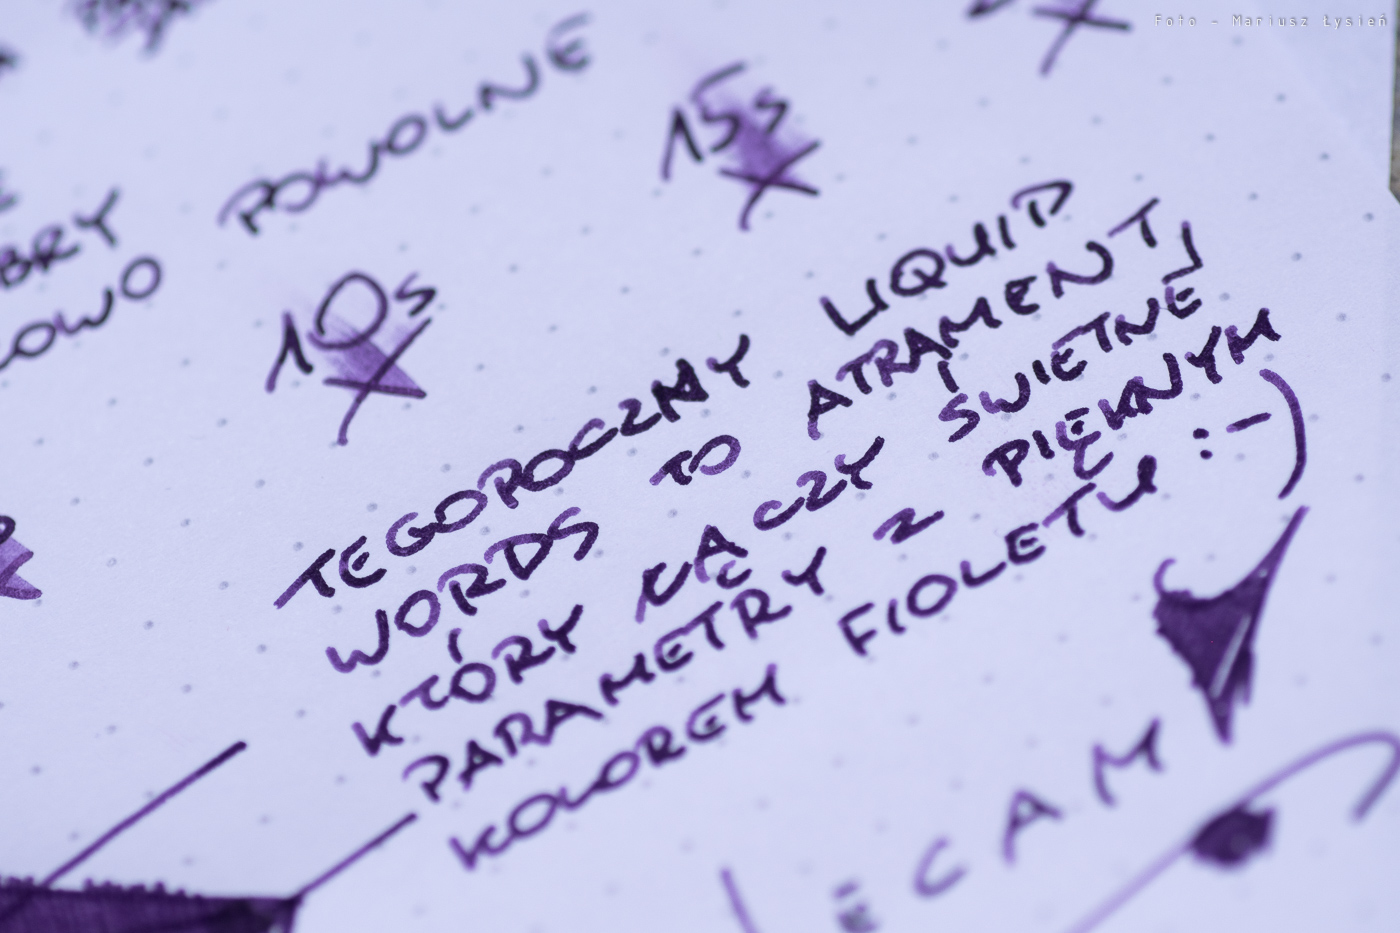 Foto - Mariusz Łysień
POWOLNE
15s
10s
TEGOROCZNY LIQUID
WORDS TO ATRAMENT,
KTÓRY ŁĄCZY ŚWIETNE
PARAMETRY Z PIĘKNYM
KOLOREM FIOLETU :-)